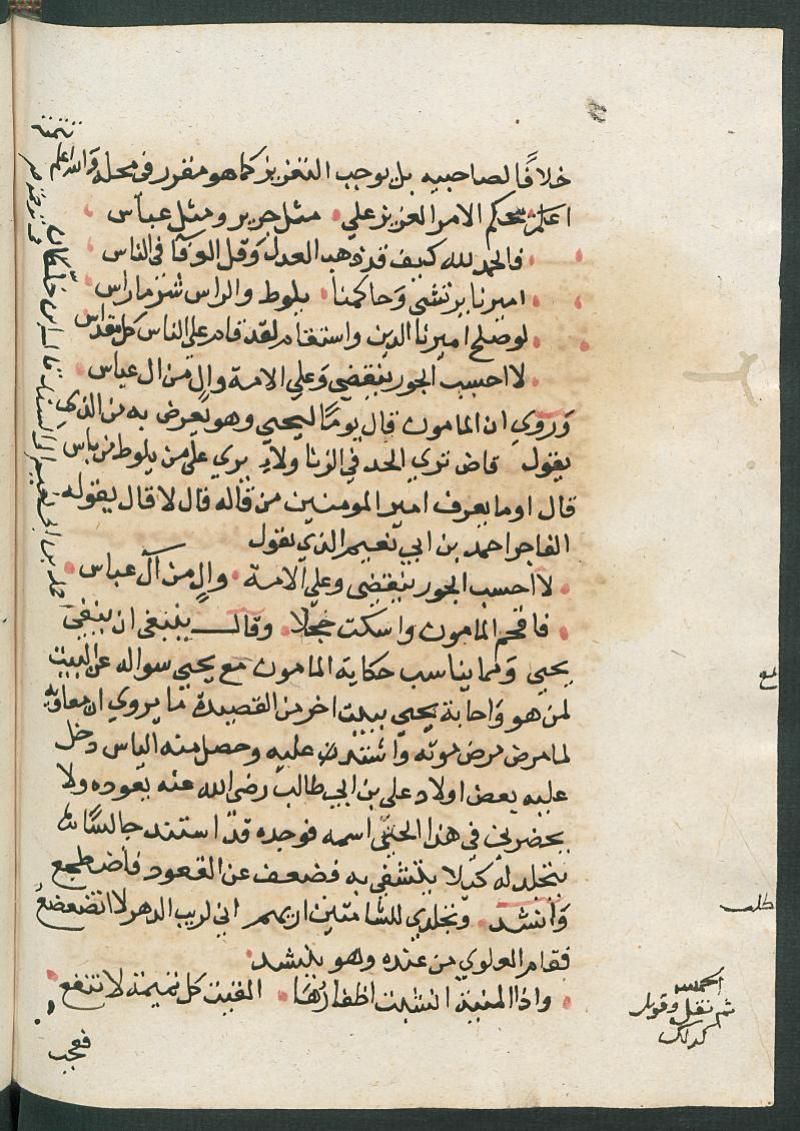 خلافًا لصاحبيه بل يوجب التعزيز كما هو مقرر في محله والله اعلم
اعلم بحكم الامر العزيز علي مثل جرير ومثل عباس
فالحمد لله كيف قد ذهب العدل وقل الوفا في الناس
اميرنا يرتشي وحاكمنا يلوط والراس شر ما راس
لو صلح اميرنا الدين واستقام لقد قام علي الناس كل مقداس
لا احسب الجور ينقضي وعلي الامة وال من ال عباس
وروي ان المامون قال يومًا ليحيي وهو يُعرض به من الذي
يقول قاض تري الحد في الزنا ولا يري علي من يلوط من باس
قال اوما يعرف امير المومنين من قاله قال لا قال يقوله
الفاجر احمد بن ابي نعيم الذي يقول
لا احسب الجور ينقضي وعلي الامة والٍ من آل عباس
فافحم المامون واسكت خجلًا وقال ينبغي ان ينفي
يحيي ومما يناسب حكاية المامون مع يحيي سواله عن البيت
لمن هو واجابة يحيي ببيت اخر من القصيدة ما يروي ان معاوية
لما مرض مرض موته واشتدت عليه وحصل منه الياس دخل
عليه بعض اولاد علي بن ابي طالب رضي الله عنه يعوده ولا
يحضرني في هذا الحين اسمه فوجده قد استند جالسًا
يتجلد له كيلا يتشفي به فضعف عن القعود فاضطجع
وانشد وتجلدي للشامتين اريهم اني لريب الدهر لا اتضعضع
فقام العلوي من عنده وهو ينشد
واذا المنية انشبت اظفارها الفيت كل تميمة لا تنفع
فعجب
تتمة
قال ابن خلكان في ترجمة
احمد بن ابي نعيم
طلب
الحمد لله
ثم نقل وقوبل
كذلك